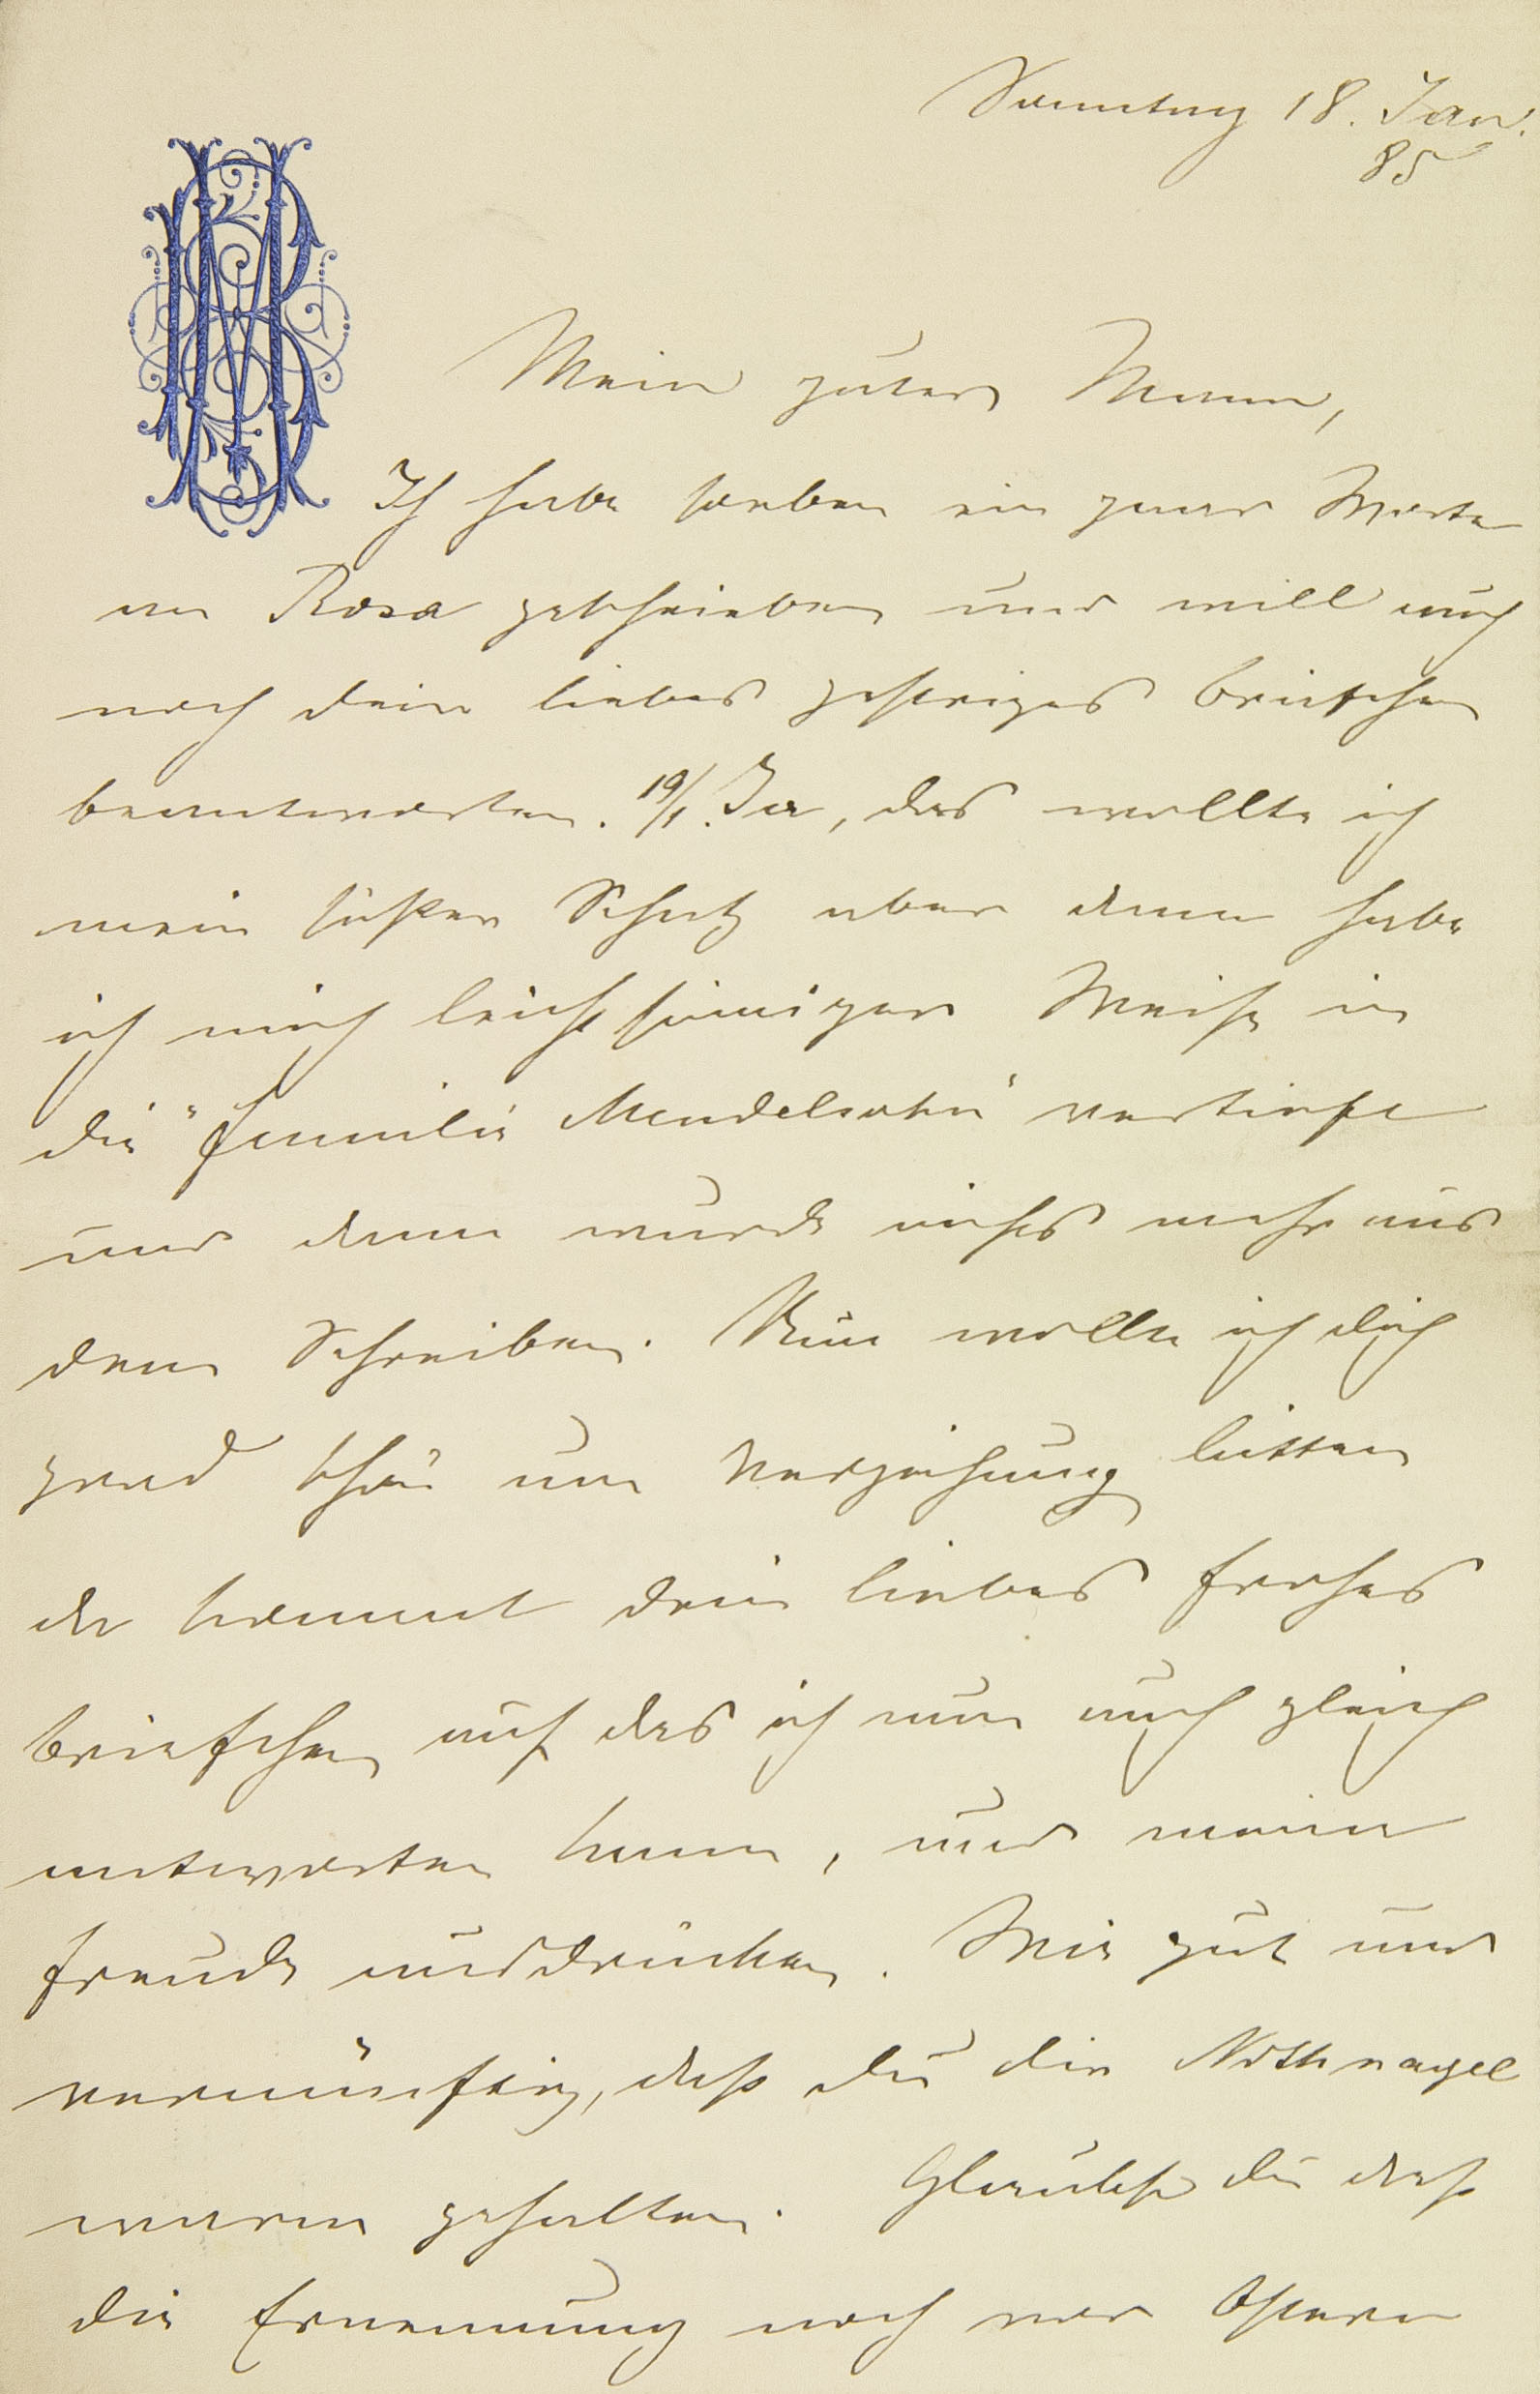 Sonntag 18. Jan.
85
MB
Mein guter Mann,
Ich habe soeben ein paar Worte
an Rosa geschrieben und will auch
noch dein liebes gestriges Briefchen
beantworten. 19/1. Ja, das wollte ich
mein süßer Schatz aber dann habe
ich mich leichtsinniger Weise in
die "Familie Mendelsohn" vertieft
und dann wurde nichts mehr aus
dem Schreiben. Nun wollte ich dich
grad schön um Verzeihung bitten
da kommt dein liebes frohes
Briefchen auf das ich nun auch gleich
antworten kann, und meine
Freude ausdrücken. Wie gut und
vernünftig, daß du dir Nothnagel
warm gehalten. Glaubst du daß
die Ernennung noch vor Ostern